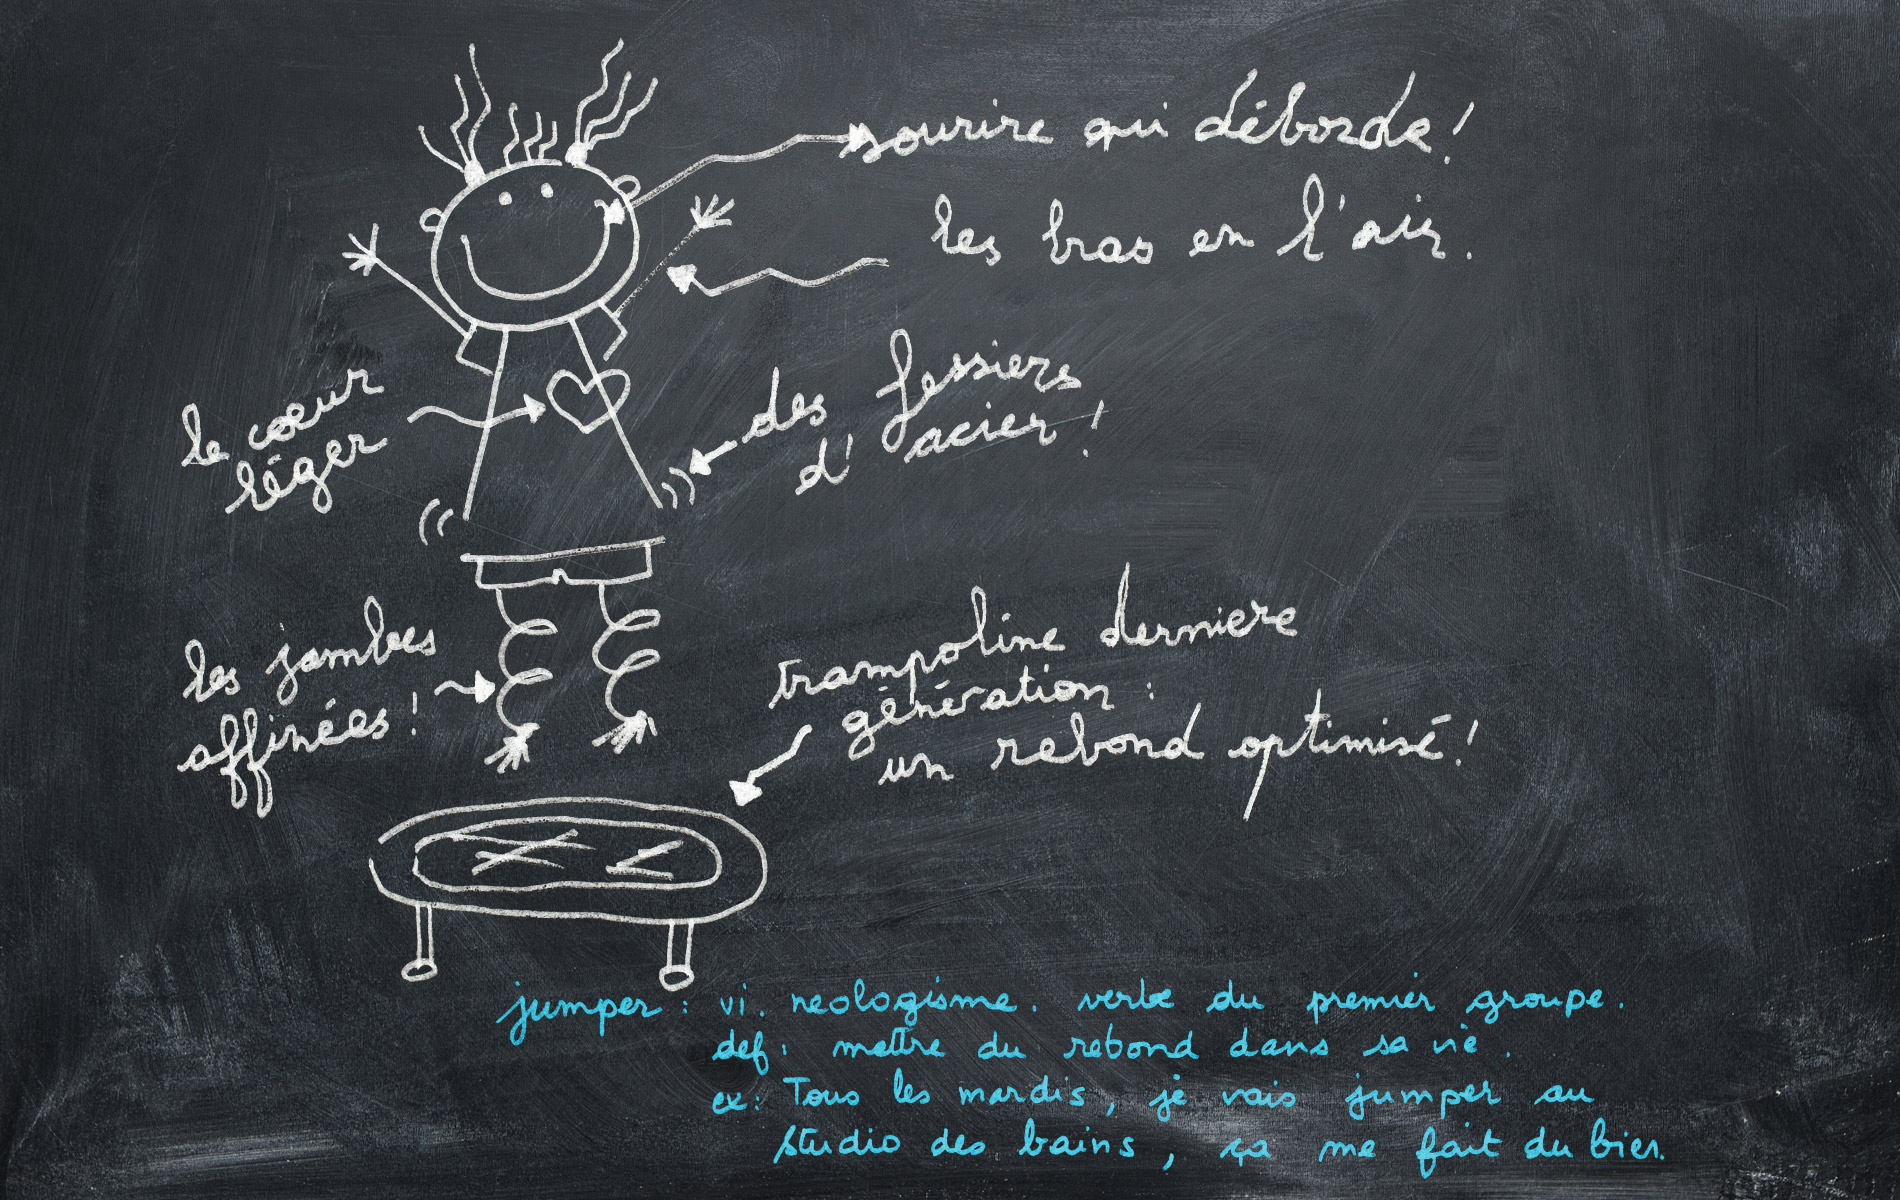 sourire qui déborde!
les bras en l'air.
le cœur
léger
des fessiers
d'acier!
les jambes
affinées!
trampoline derniere
génération :
un rebond optimisé!
jumper : vi. neologisme. verbe du premier groupe.
def : mettre du rebond dans sa vie.
ex: Tous les mardis, je vais jumper au
studio des bains, ça me fait du bien.